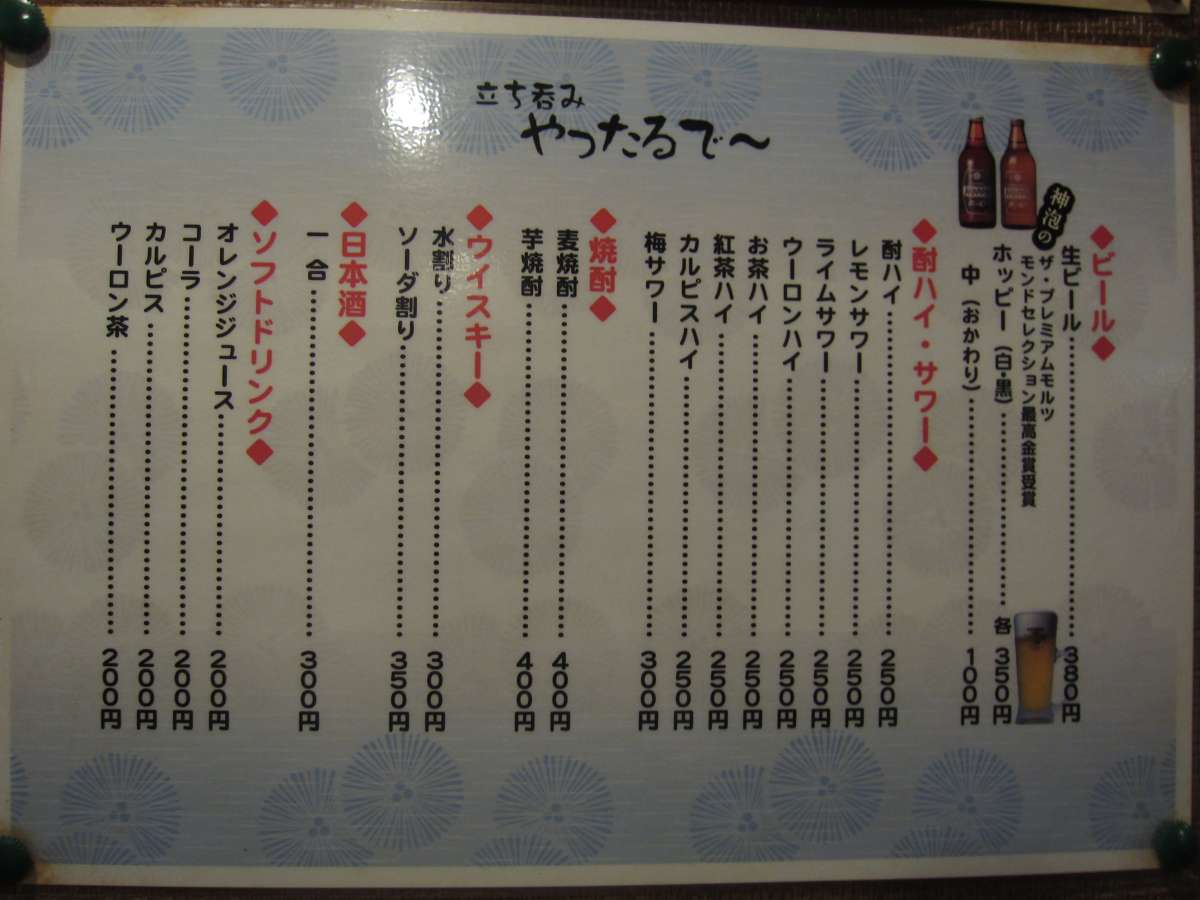 立ち呑み
やったるで～
◆ビール◆
生ビール……………………380円
神泡の
ザ・プレミアムモルツ
モンドセレクション最高金賞受賞
ホッピー（白・黒）……………………各 350円
中（おかわり）……………………100円
◆酎ハイ・サワー◆
酎ハイ……………………250円
レモンサワー……………………250円
ライムサワー……………………250円
ウーロンハイ……………………250円
お茶ハイ……………………250円
紅茶ハイ……………………250円
カルピスハイ……………………250円
梅サワー……………………300円
◆焼酎◆
麦焼酎……………………400円
芋焼酎……………………400円
◆ウィスキー◆
水割り……………………300円
ソーダ割り……………………350円
◆日本酒◆
一合……………………300円
◆ソフトドリンク◆
オレンジジュース……………………200円
コーラ……………………200円
カルピス……………………200円
ウーロン茶……………………200円